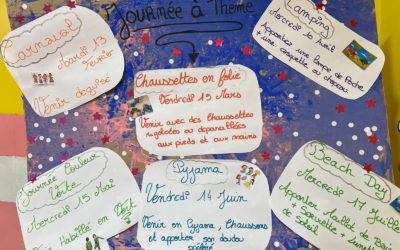 Journée à Thème
Carnaval
Mardi 13
Février
Venir déguisé
Camping
Mercredi 10 Avril
Apportez une lampe de Poche
+ une casquette ou chapeau
Chaussettes en folie
Vendredi 15 Mars
Venir avec des chaussettes
rigolotes ou dépareillées
aux pieds et aux mains
Journée Couleur
Verte
Mercredi 15 Mai
Venir Habillé en Vert
Pyjama
Vendredi 14 Juin
Venir en Pyjama, Chaussons
et apporter son doudou
Beach Day
Mercredi 17 Juillet
Apporter Maillot de Bain
+ Serviette + Lunettes
de Soleil